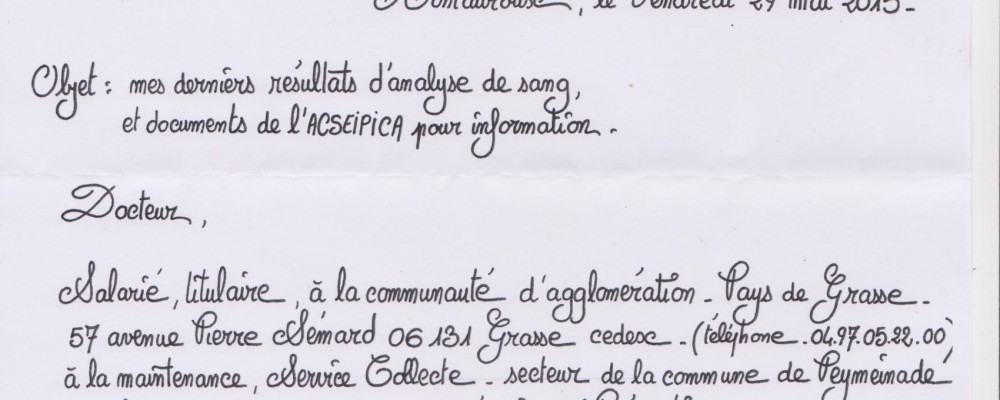 , le Vendredi 29 mai 2015-
Objet : mes derniérs résultats d'analyse de sang,
et documents de l'ACSEIPICA pour information.
Docteur,
Salarié, titulaire, à la communauté d'agglomération - Pays de Grasse -
57 avenue Pierre Sémard 06 131 Grasse cedex - (téléphone - 04.97.05.22.00)
à la maintenance, Service Collecte - secteur de la commune de Peymeinade